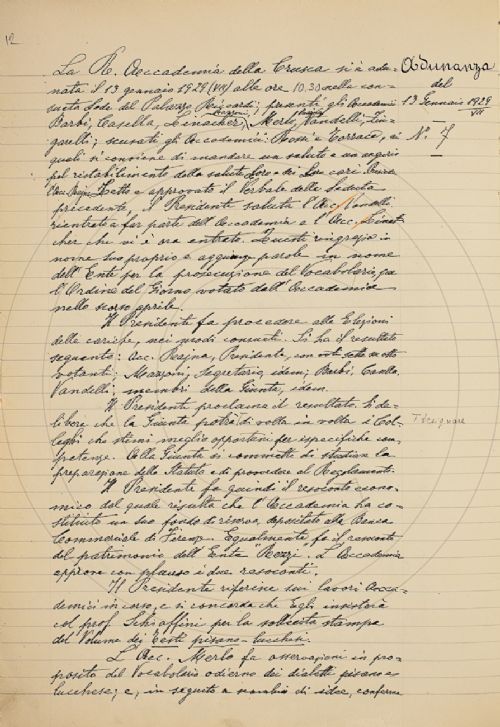 12
Adunanza
del
13 Gennaio 1929
VII
N.° 7
La R. Accademia della Crusca si è adu-
nata il 13 gennaio 1929 (VII) alle ore 10.30 nella con-
sueta Sede del Palazzo Riccardi; presenti gli Accademici
Barbi, Casella, Linacher, Mazzoni, Merlo, Rajna, Vandelli, Lin-
garelli; scusati gli Accademici Rossi e Torraca, ai
quali si conviene di mandare un saluto e un augurio
pel ristabilimento della salute loro o dei loro cari.
Letto e approvato il Verbale della seduta
precedente, il Presidente saluta l'Acc. Vandelli
rientrato a far parte dell'Accademia e l'Acc. Lina-
cher che vi è ora entrato. Questi ringrazia in
nome suo proprio e aggiunge parole in nome
dell'Ente per la prosecuzione del Vocabolario, per
l'Ordine del Giorno votato dall'Accademia
nello scorso aprile.
Il Presidente fa procedere alle Elezioni
delle cariche, nei modi consueti. Si ha il resultato
seguente: Acc. Rajna, Presidente, con voti sette su otto
votanti; Mazzoni, Segretario, idem; Barbi, Casella,
Vandelli, membri della Giunta, idem.
Il Presidente proclama il resultato. Si de-
libera che la Giunta potrà di volta in volta i Col-
leghi che stimi meglio opportuni per ispecifiche com-
petenze. Alla Giunta si commette di studiare la
preparazione dello Statuto e di provvedere al Regolamento.
Il Presidente fa quindi il resoconto econo-
mico dal quale risulta che l'Accademia ha co-
stituito un suo fondo di riserva, depositato alla Banca
Commerciale di Firenze. Egualmente fa il resoconto
del patrimonio dell'Ente "Rezzi". L'Accademia
approva con plauso i due resoconti.
Il Presidente riferisce sui lavori Acca-
demici in corso, e si concorda che Egli insisterà
col prof. Schiaffini per la sollecita stampa
del Volume dei testi pisano-lucchesi.
L'Acc. Merlo fa osservazioni in pro-
posito del Vocabolario odierno dei dialetti pisano e
lucchese; e, in seguito a scambio di idee, conferma